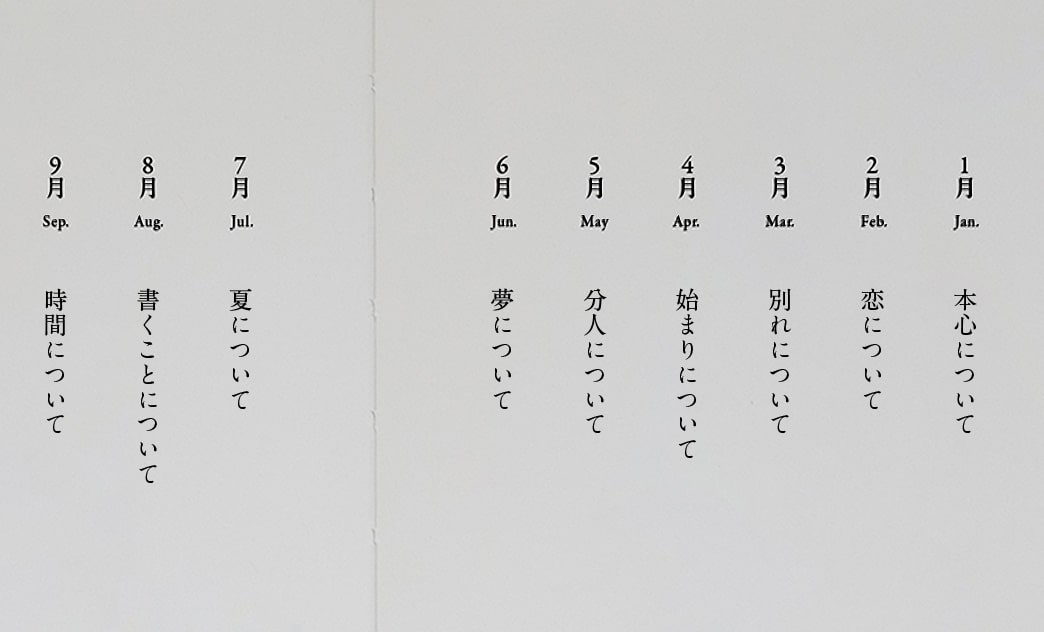 1月
Jan.
本心について
2月
Feb.
恋について
3月
Mar.
別れについて
4月
Apr.
始まりについて
5月
May
分人について
6月
Jun.
夢について
7月
Jul.
夏について
8月
Aug.
書くことについて
9月
Sep.
時間について